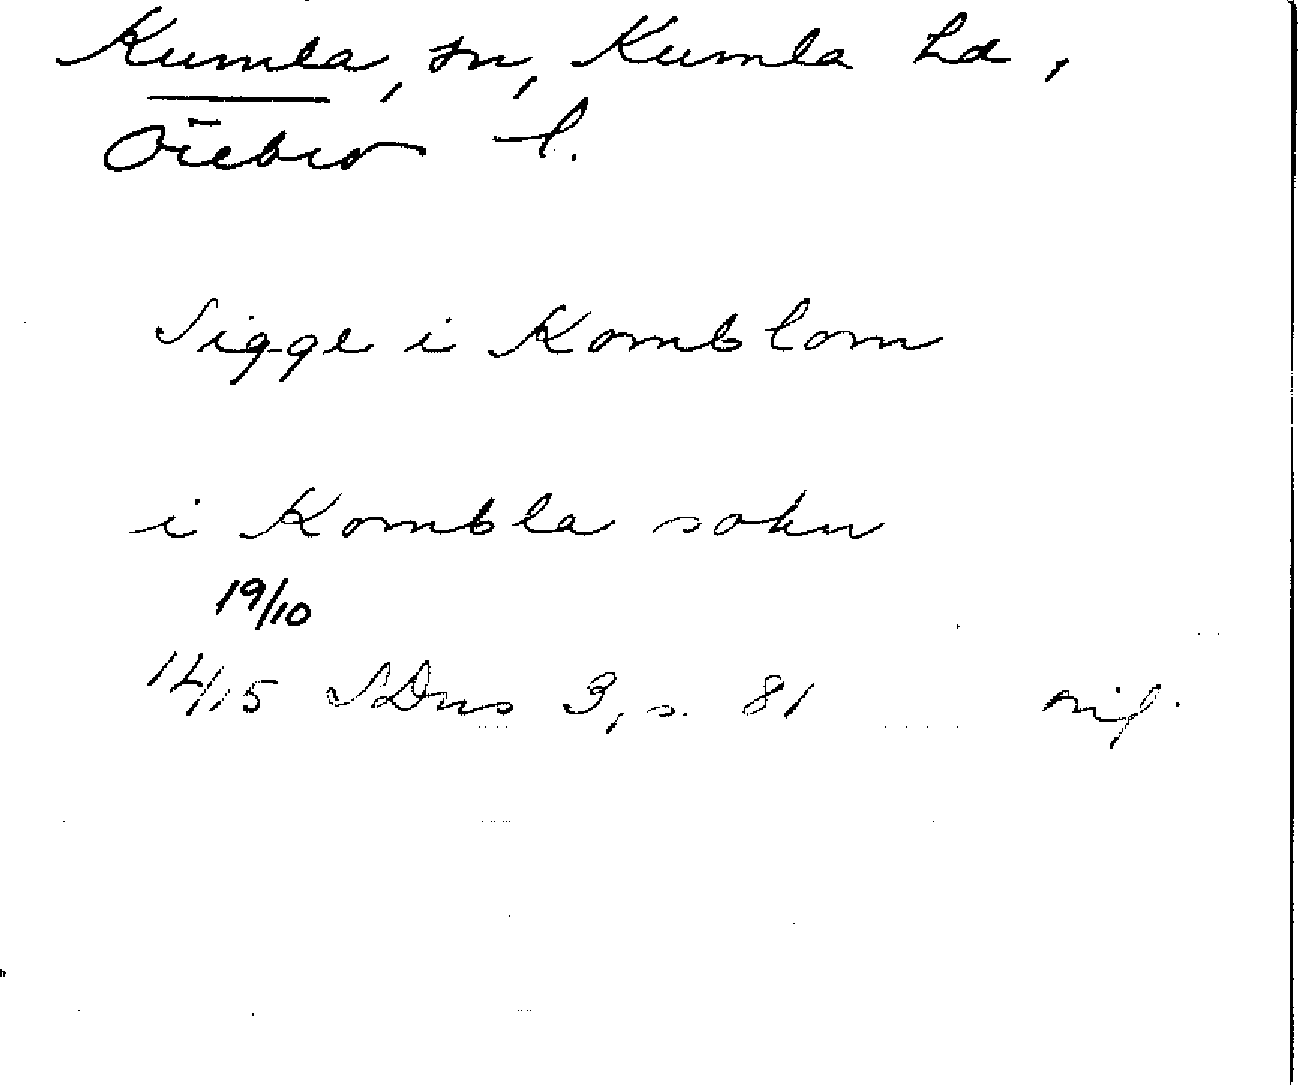 Kumla, sn, Kumla hd,
Örebro l.
Sigge i Komblom
i Kombla sokn
19/10
1415 SDns 3, s. 81